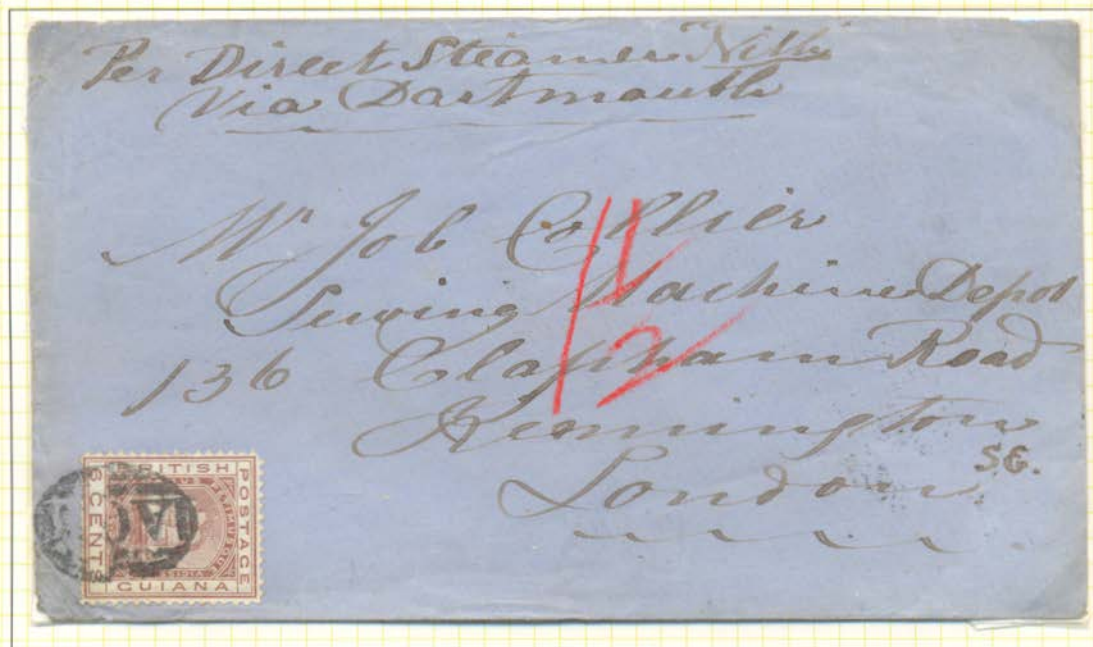 Per Direct Steamer
Via Dartmouth
Mr Job Collier
Sewing Machine Depot
136 Clapham Road
Kennington
S.E.
London
1½
BRITISH
POSTAGE
GUIANA
CENTS